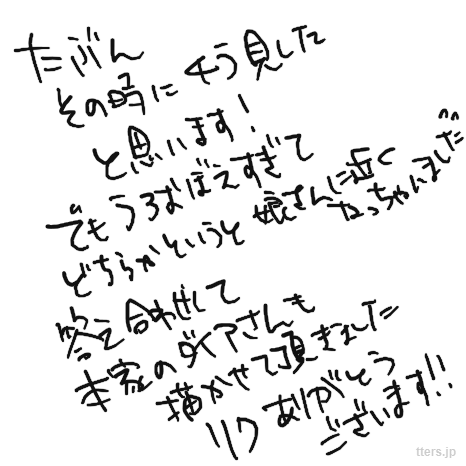 たぶん
その時に4う見した
と思います!
でもうろおぼえすぎて
どちらかというと娘さんに近く
なっちゃいました^^
答え合わせして
本家のダイアさんも
描かせて頂きました
リクありがとう
ございます!!
tters.jp